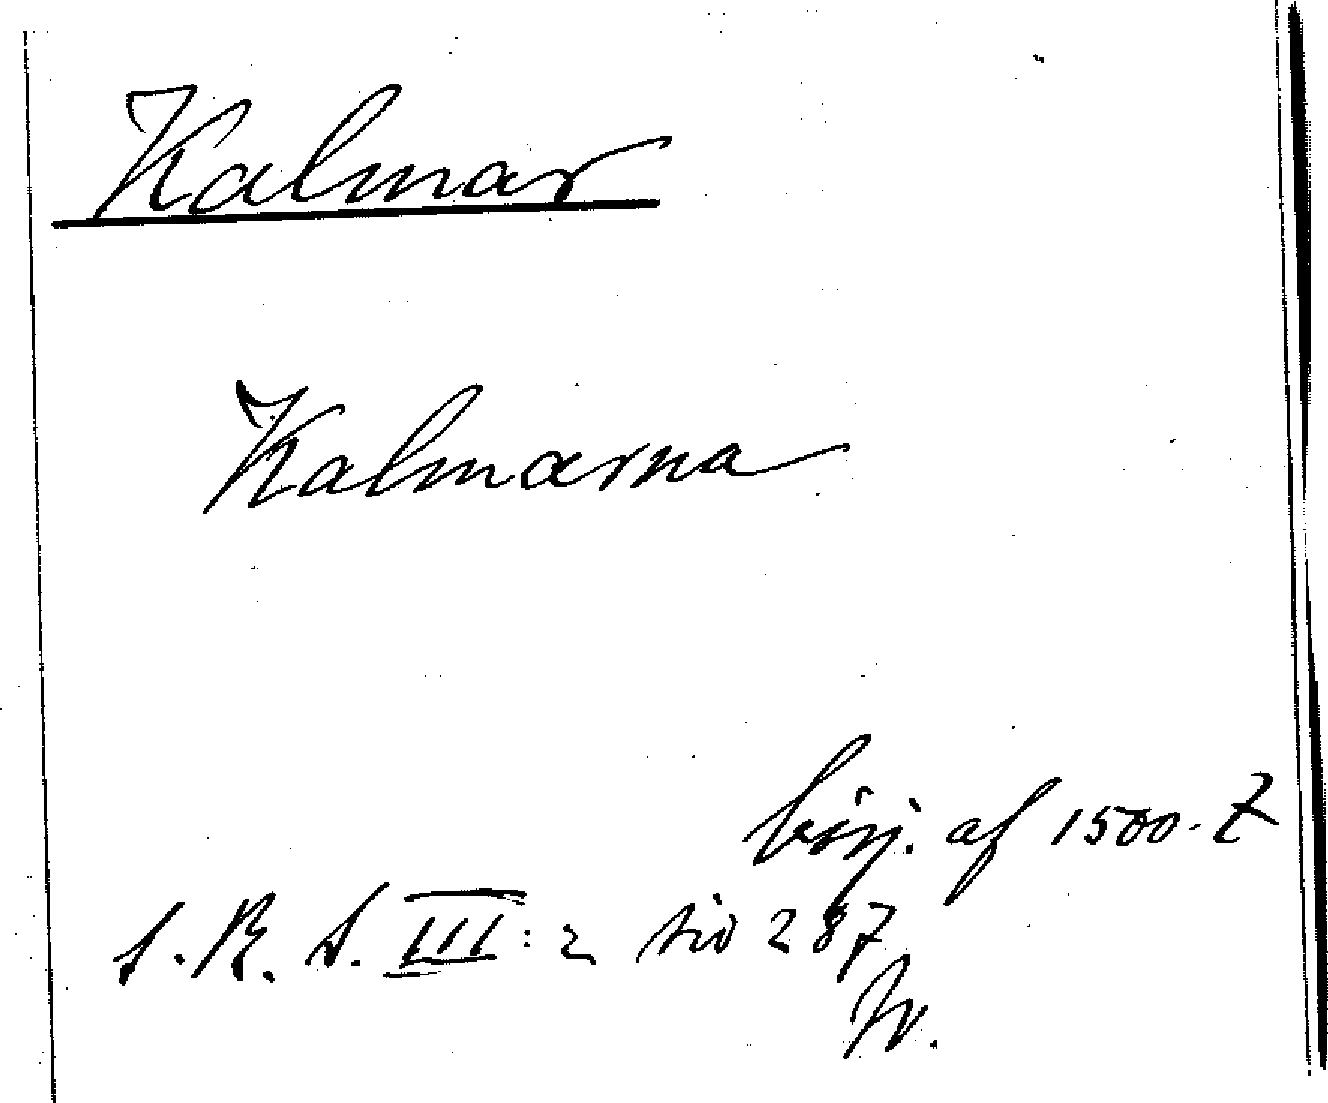 Kalmar
Kalmarna
börj. af 1500-t
S. R. S. III: 2 sid 287